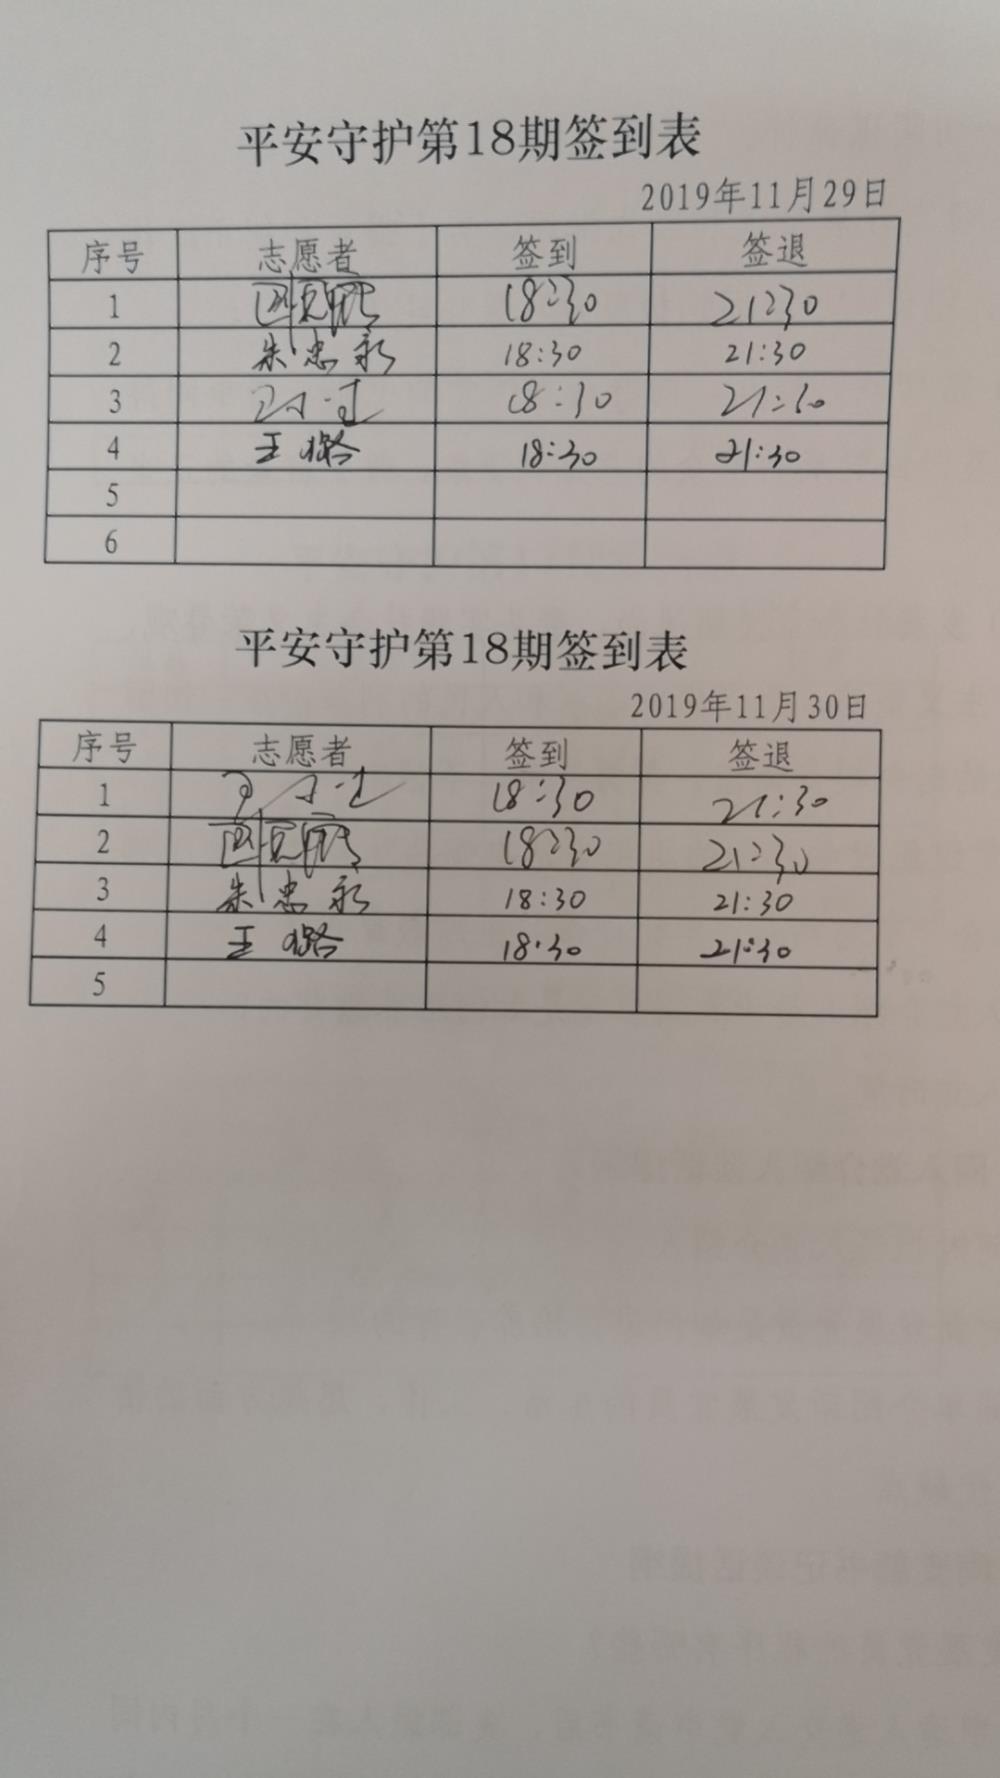 平安守护第18期签到表
2019年11月29日
序号 志愿者 签到 签退
1 18:30 21:30
2 朱忠永 18:30 21:30
3 18:30 21:30
4 王璐 18:30 21:30
5
6
平安守护第18期签到表
2019年11月30日
序号 志愿者 签到 签退
1 18:30 21:30
2 18:30 21:30
3 朱忠永 18:30 21:30
4 王璐 18:30 21:30
5